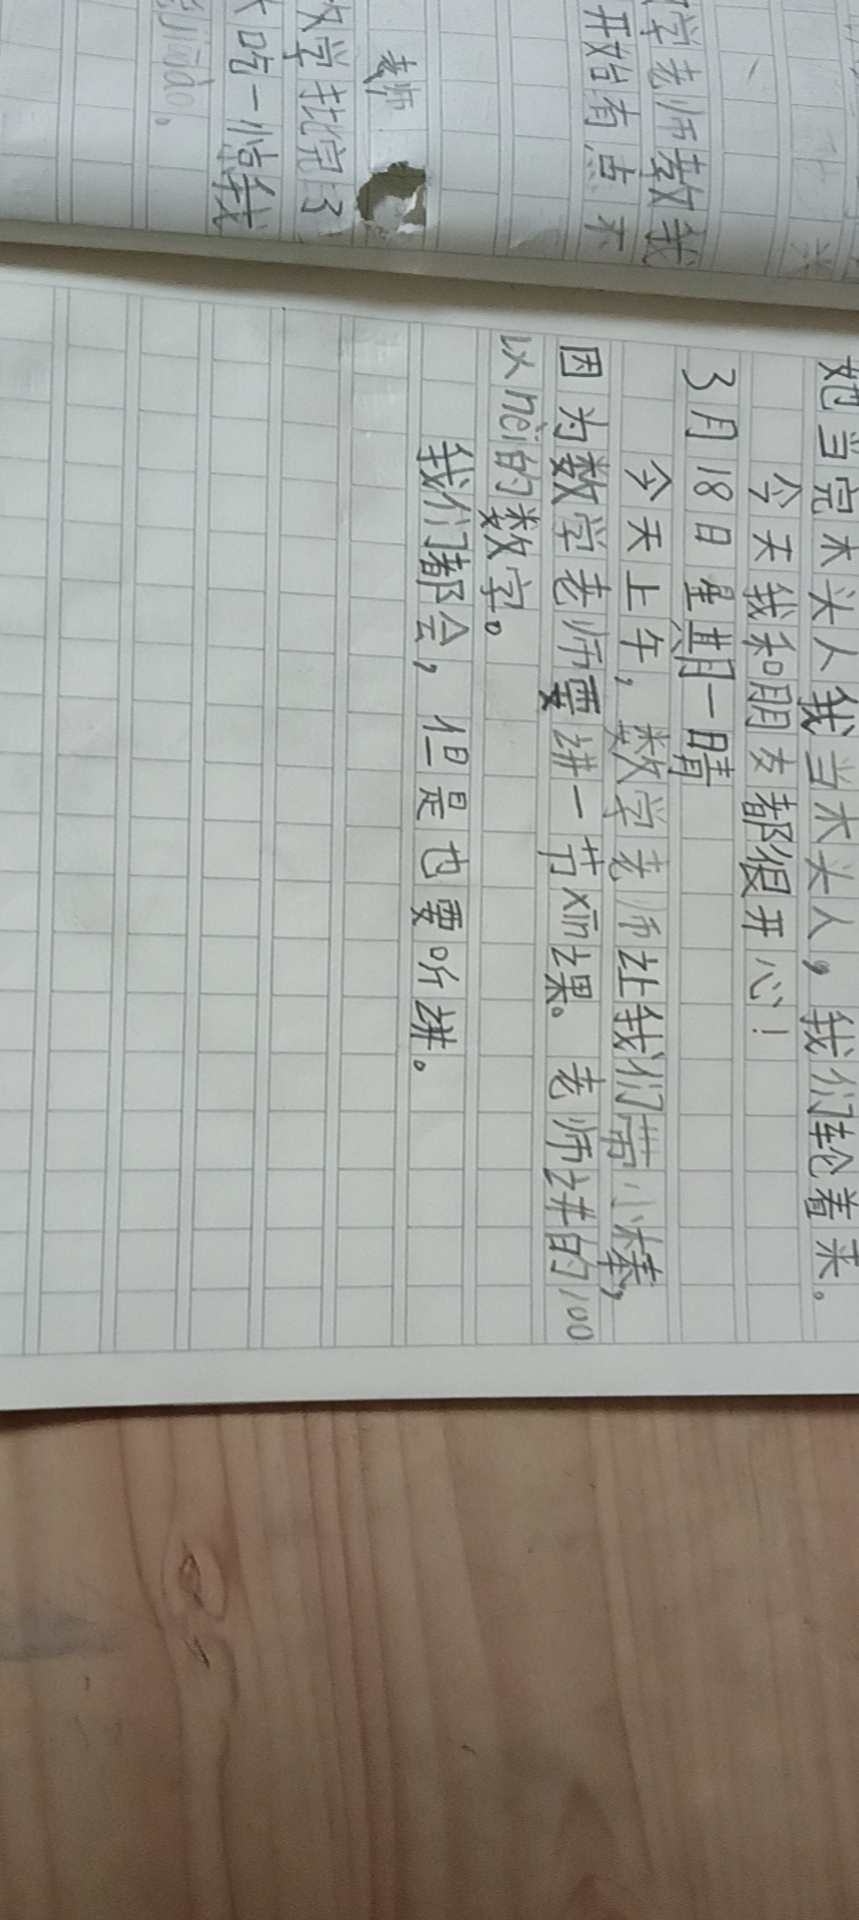 学老师教我
开始有点不
老师
数学批完了
大吃一惊我
jiāo。
她当完木头人我当木头人，我们轮着来。
今天我和朋友都很开心！
3月18日星期一晴
今天上午，数学老师让我们带小棒，
因为数学老师要讲一节xīn课。老师讲的100
以nèi的数字。
我们都会，但是也要听讲。